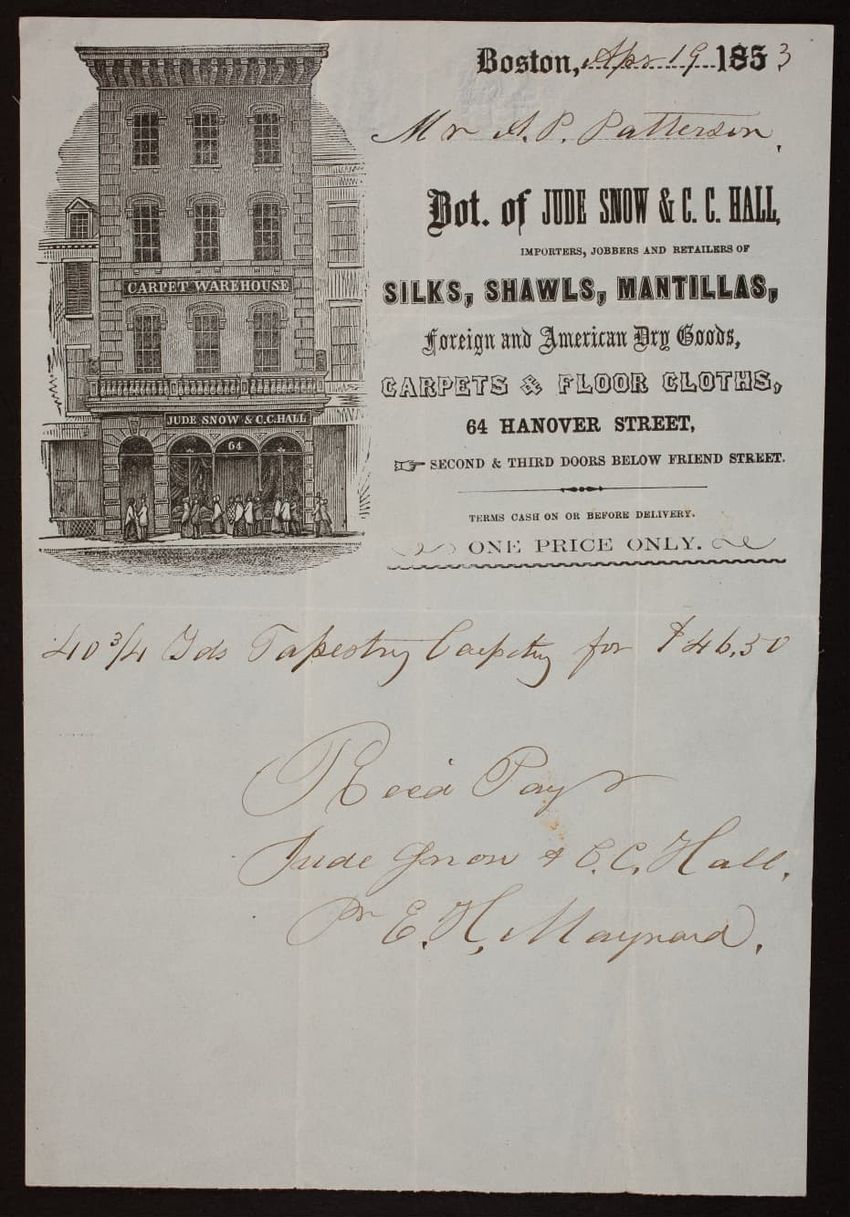 Boston, Apr 19 1853
Mr A. P. Patterson,
Bot. of JUDE SNOW & C. C. HALL,
IMPORTERS, JOBBERS AND RETAILERS OF
SILKS, SHAWLS, MANTILLAS,
Foreign and American Dry Goods,
CARPETS & FLOOR CLOTHS,
64 HANOVER STREET,
☞ SECOND & THIRD DOORS BELOW FRIEND STREET.
TERMS CASH ON OR BEFORE DELIVERY.
ONE PRICE ONLY.
CARPET WAREHOUSE
JUDE SNOW & C.C. HALL
64
40 3/4 Yds Tapestry Carpetg for $46,50
Recd Payt
Jude Snow & C. C. Hall.
Pr E. H. Maynard.